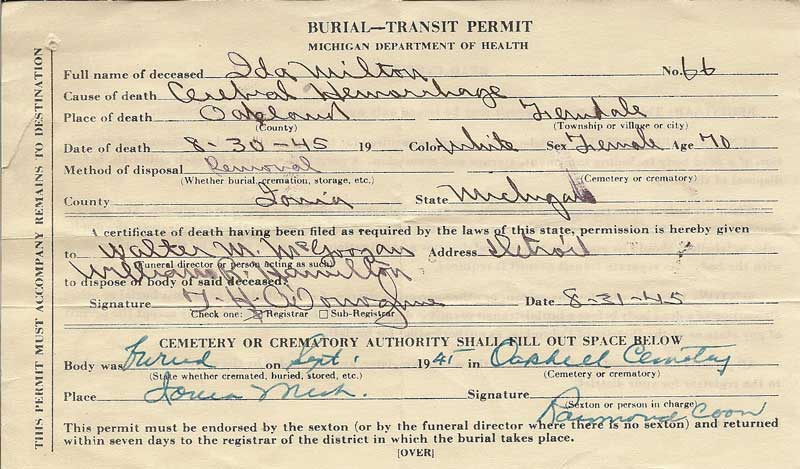 BURIAL—TRANSIT PERMIT
MICHIGAN DEPARTMENT OF HEALTH
Full name of deceased Ida Milton No. 66
Cause of death Cerebral Hemorrhage
Place of death Oakland Ferndale
(County) (Township or village or city)
Date of death 8-30-45 19 Color White Sex Female Age 70
Method of disposal Removal
(Whether burial, cremation, storage, etc.) (Cemetery or crematory)
County Ionia State Michigan
A certificate of death having been filed as required by the laws of this state, permission is hereby given
to Walter M. McGoogan Address Detroit
(Funeral director or person acting as such)
William R. Hamilton
to dispose of body of said deceased:
Signature T. H. O'Donoghue Date 8-31-45
Check one: Registrar Sub-Registrar
CEMETERY OR CREMATORY AUTHORITY SHALL FILL OUT SPACE BELOW
Body was buried on Sept. 1 1945 in Oakhill Cemetery
(State whether cremated, buried, stored, etc.) (Cemetery or crematory)
Place Ionia Mich. Signature
(Sexton or person in charge)
Raymond Coon
This permit must be endorsed by the sexton (or by the funeral director where there is no sexton) and returned
within seven days to the registrar of the district in which the burial takes place.
[OVER]
THIS PERMIT MUST ACCOMPANY REMAINS TO DESTINATION